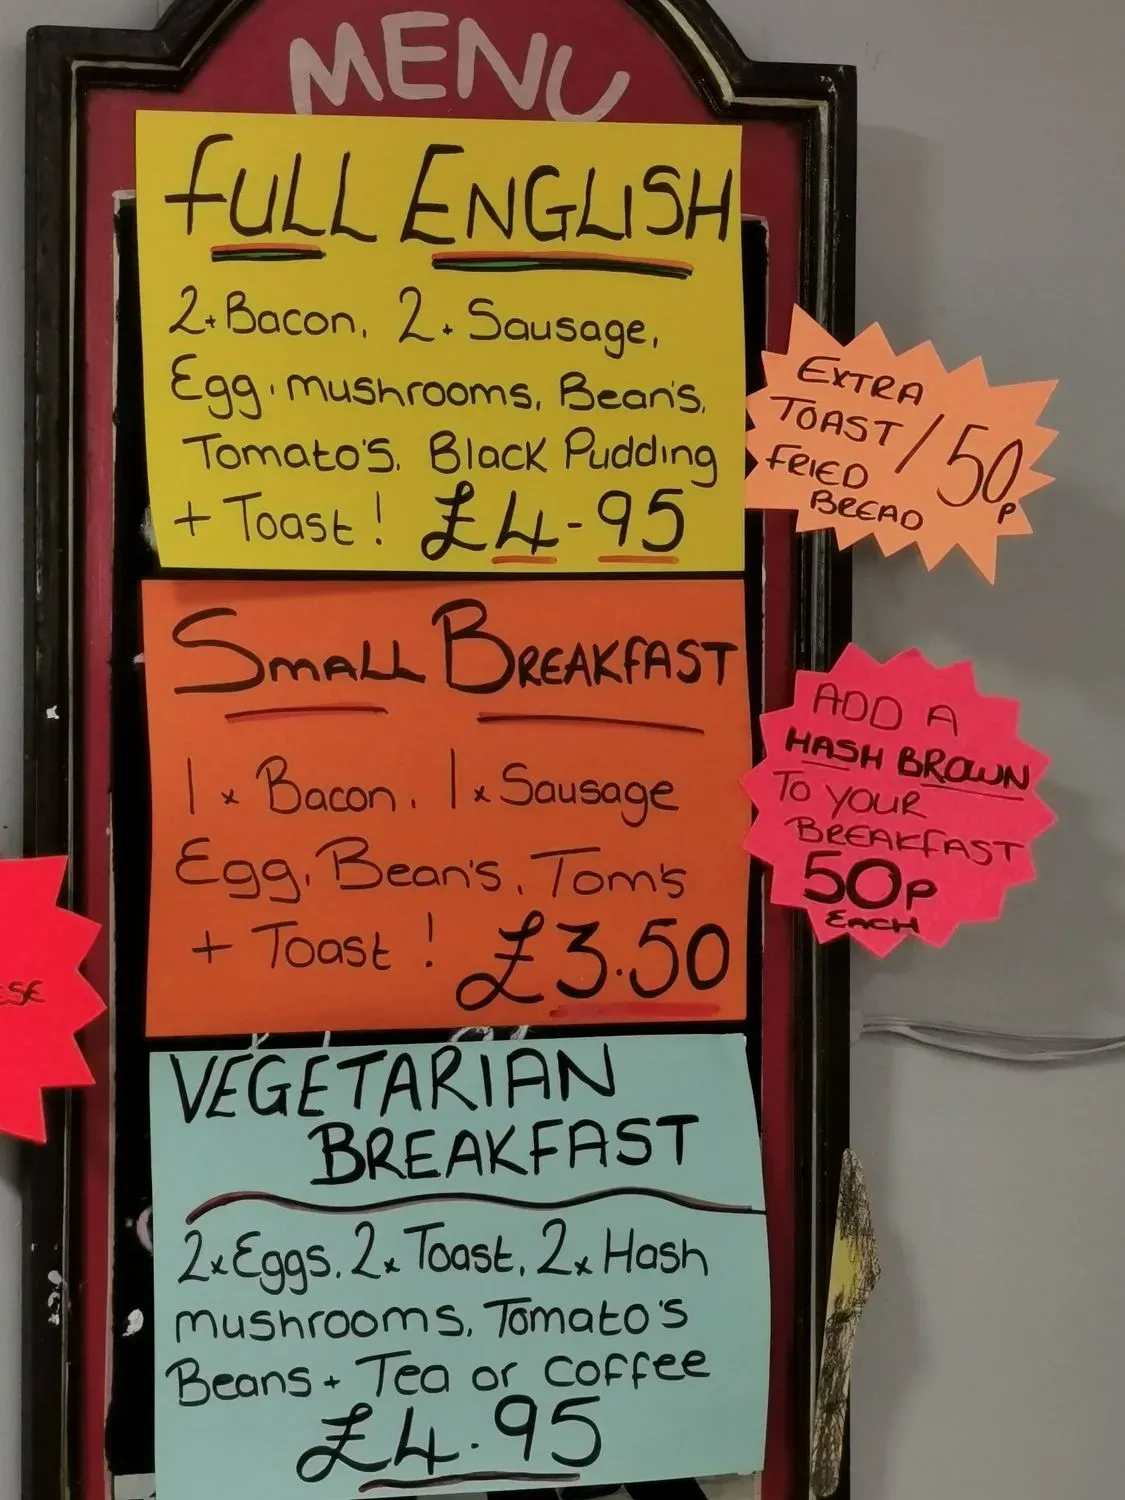 MENU
FULL ENGLISH
2x Bacon, 2x Sausage,
Egg, mushrooms, Bean's,
Tomato's, Black Pudding
+ Toast! £4-95
EXTRA
TOAST / 50p
FRIED
BREAD
SMALL BREAKFAST
1x Bacon, 1x Sausage
Egg, Bean's, Tom's
+ Toast! £3.50
ADD A
HASH BROWN
TO YOUR
BREAKFAST
50p
EACH
VEGETARIAN
BREAKFAST
2x Eggs, 2x Toast, 2x Hash
mushrooms, Tomato's
Beans + Tea or coffee
£4.95